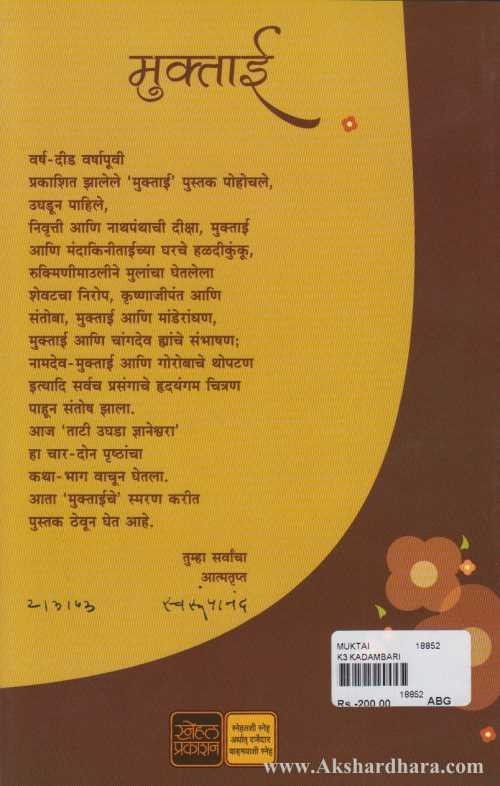 मुक्ताई
वर्ष-दीड वर्षापूवी
प्रकाशित झालेले 'मुक्ताई' पुस्तक पोहोचले,
उघडून पाहिले,
निवृत्ती आणि नाथपंथाची दीक्षा, मुक्ताई
आणि मंदाकिनीताईच्या घरचे हळदीकुंकू,
रुक्मिणीमाउलीने मुलांचा घेतलेला
शेवटचा निरोप, कृष्णाजीपंत आणि
संतोबा, मुक्ताई आणि मांडेरांधण,
मुक्ताई आणि चांगदेव ह्यांचे संभाषण;
नामदेव-मुक्ताई आणि गोरोबाचे थोपटण
इत्यादि सर्वच प्रसंगाचे हृदयंगम चित्रण
पाहून संतोष झाला.
आज 'ताटी उघडा ज्ञानेश्वरा'
हा चार-दोन पृष्ठांचा
कथा-भाग वाचून घेतला.
आता 'मुक्ताईचे' स्मरण करीत
पुस्तक ठेवून घेत आहे.
तुम्हा सर्वांचा
आत्मतृप्त
२।३।७३ स्वरूपानंद
MUKTAI 18852
K3 KADAMBARI
18852
Rs.-200.00 ABG
स्नेहल प्रकाशन
स्नेहलशी स्नेह
अर्थात् दर्जेदार
वाङ्मयाशी स्नेह
www.Akshardhara.com